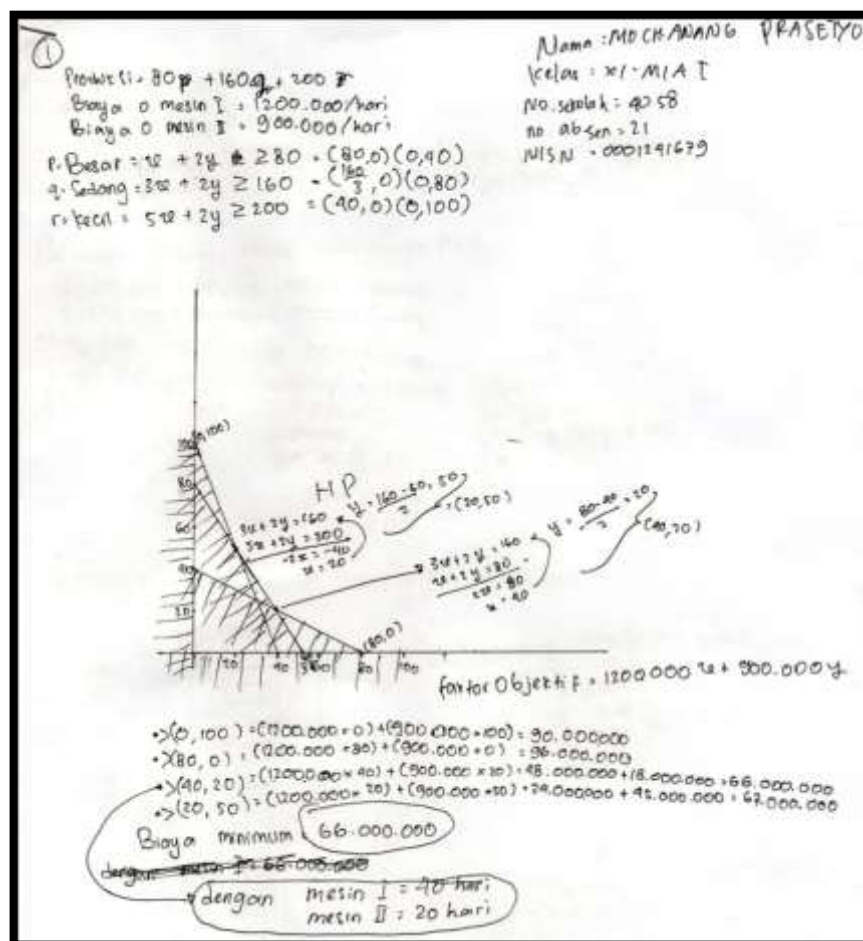 ①
Nama : MOCH.ANANG PRASETYO
Kelas : XI-MIA I
No. sekolah = 4058
no absen = 21
NISN = 0001241679
Produksi = 80p + 160q + 200 r
Biaya O mesin I = 1200.000/hari
Biaya O mesin II = 900.000/hari
p. Besar = x + 2y ≥ 80 = (80,0)(0,40)
q. Sedang = 3x + 2y ≥ 160 = (160/3, 0)(0,80)
r. kecil = 5x + 2y ≥ 200 = (40,0)(0,100)
100 (0,100)
80
60
40
20
HP
3x + 2y = 160
5x + 2y = 200
-2x = -40
x = 20
y = 160-60/2 = 50
= (20,50)
3x + 2y = 160
x + 2y = 80
2x = 80
x = 40
y = 80-40/2 = 20
(40,20)
(80,0)
20 40 80 100
Objektif = 1200000 x + 900.000 y
•>(0,100) = (1200.000 × 0) + (900.000 × 100) = 90.000000
•>(80,0) = (1200.000 × 80) + (900.000 × 0) = 96.000.000
•>(40,20) = (1200.000 × 40) + (900.000 × 20) = 48.000.000 + 18.000.000 = 66.000.000
•>(20,50) = (1200.000 × 20) + (900.000 × 50) = 24.000.000 + 45.000.000 =
Biaya minimum = 66.000.000
dengan mesin I = 66.000.000
dengan mesin I = 40 hari
mesin II = 20 hari